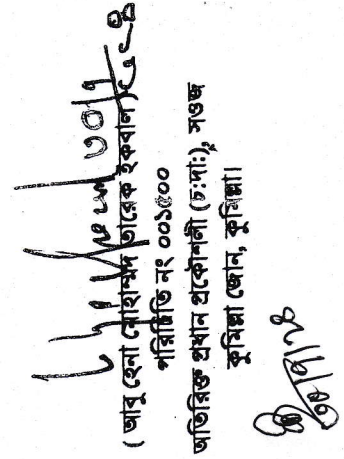 ( আবু হেনা মোহাম্মদ তারেক ইকবাল )
পরিচিতি নং ০০১৫০০
অতিরিক্ত প্রধান প্রকৌশলী (চ:দা:), সওজ
কুমিল্লা জোন, কুমিল্লা।